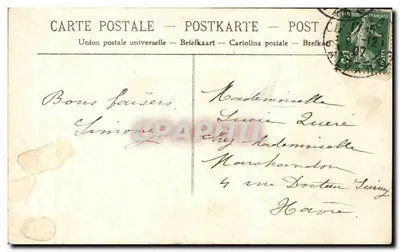 CARTE POSTALE — POSTKARTE — POST
Union postale universelle – Briefkaart – Cartolina postale – Brefkort
Bons baisers
Simone
Mademoiselle
Lucie Queré
chez Mademoiselle
Marchandon
4 rue Docteur
Havre